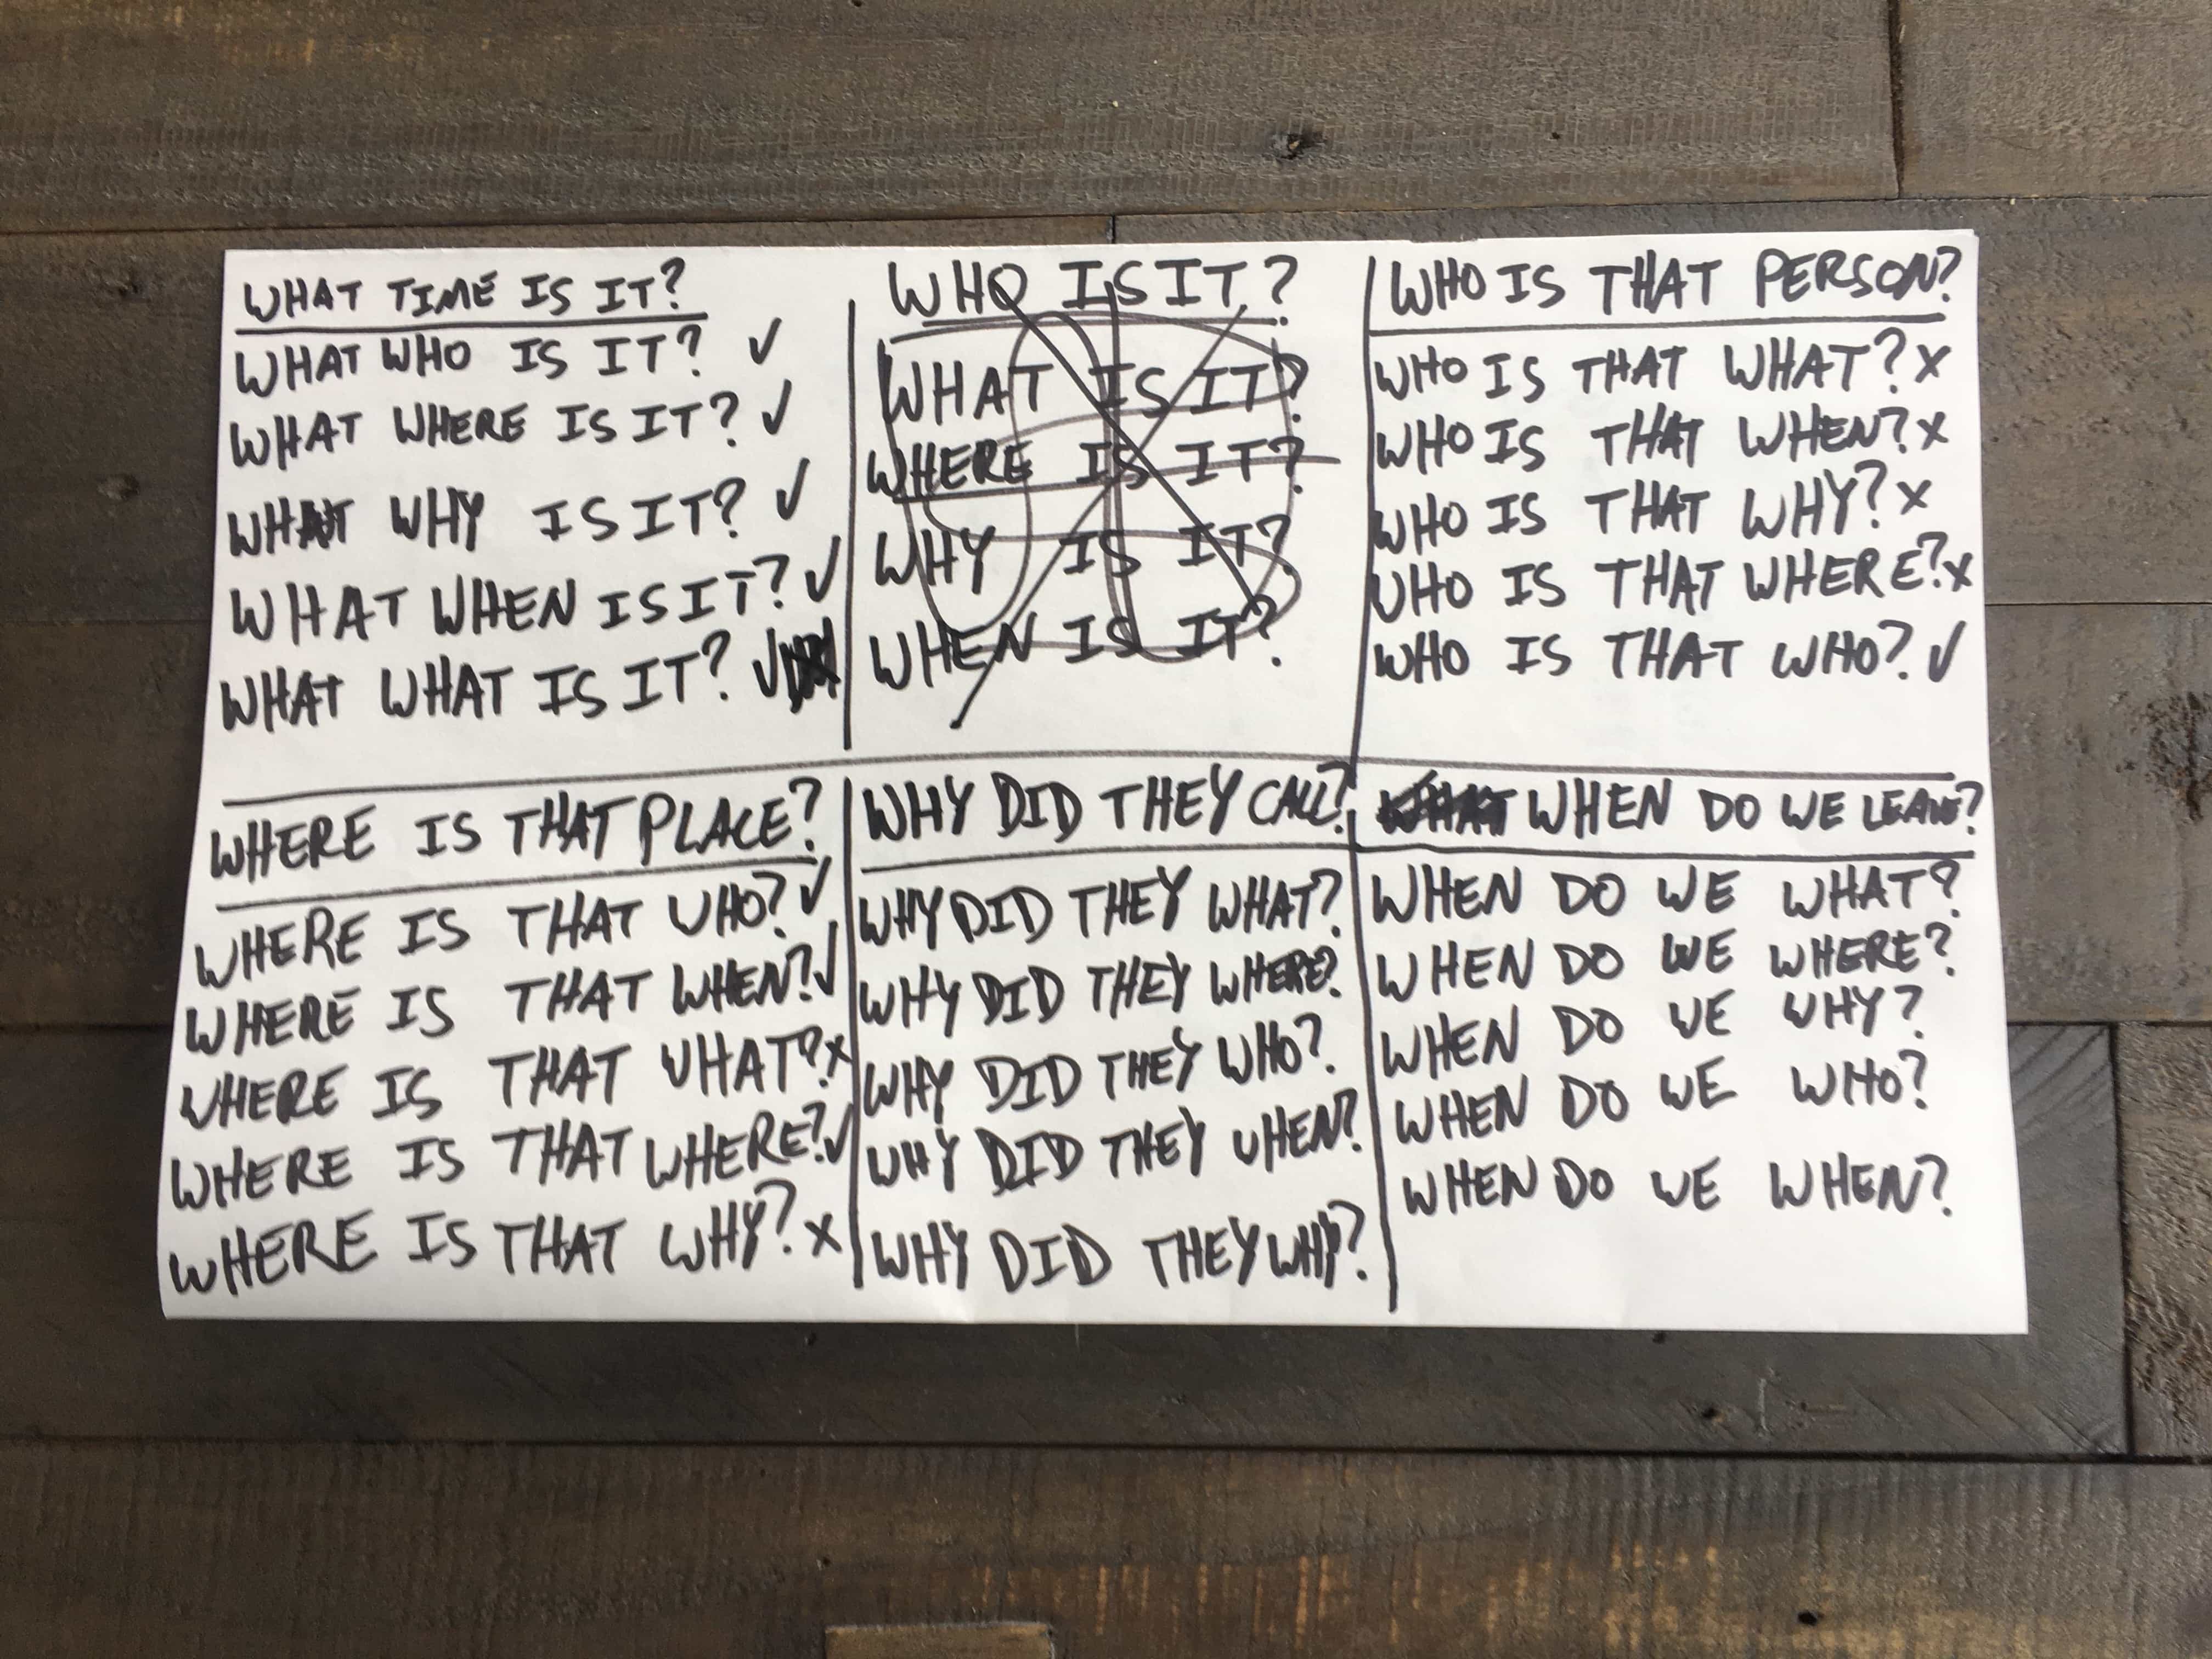 WHAT TIME IS IT?
WHAT WHO IS IT? ✓
WHAT WHERE IS IT? ✓
WHAT WHY IS IT? ✓
WHAT WHEN IS IT? ✓
WHAT WHAT IS IT? ✓
WHO IS IT?
WHAT IS IT?
WHERE IS IT?
WHY IS IT?
WHEN IS IT?
WHO IS THAT PERSON?
WHO IS THAT WHAT? x
WHO IS THAT WHEN? x
WHO IS THAT WHY? x
WHO IS THAT WHERE? x
WHO IS THAT WHO? ✓
WHERE IS THAT PLACE?
WHERE IS THAT WHO? ✓
WHERE IS THAT WHEN? ✓
WHERE IS THAT WHAT? x
WHERE IS THAT WHERE? ✓
WHERE IS THAT WHY? x
WHY DID THEY CALL?
WHY DID THEY WHAT?
WHY DID THEY WHERE?
WHY DID THEY WHO?
WHY DID THEY WHEN?
WHY DID THEY WHY?
WHEN DO WE LEAVE?
WHEN DO WE WHAT?
WHEN DO WE WHERE?
WHEN DO WE WHY?
WHEN DO WE WHO?
WHEN DO WE WHEN?